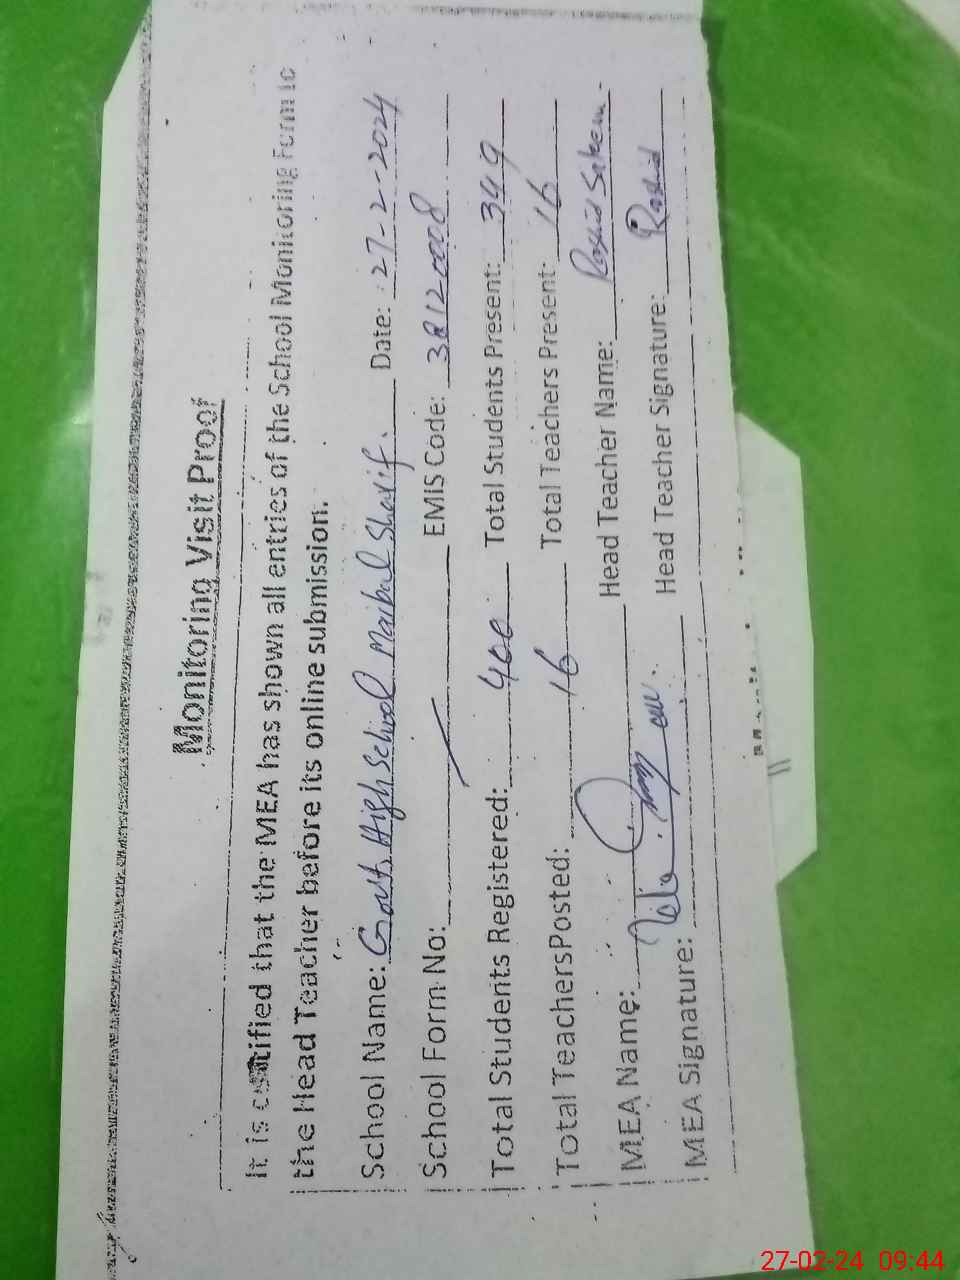 Monitoring Visit Proof
It is certified that the MEA has shown all entries of the School Monitoring Form to
the Head Teacher before its online submission.
School Name: Govt. High School Maibal Sharif. Date: 27-2-2024
School Form No: EMIS Code: 38120008
Total Students Registered: 400 Total Students Present: 349
Total Teachers Posted: 16 Total Teachers Present: 16
MEA Name: Head Teacher Name: Rashid Saleem
MEA Signature: Head Teacher Signature: Rashid
27-02-24 09:44